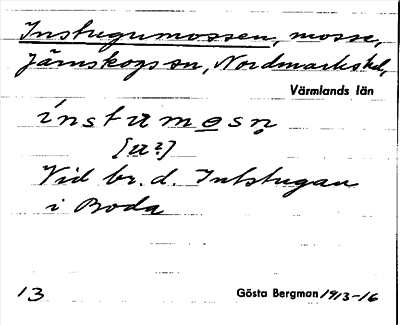 Instugumossen, mosse,
Järnskogs sn, Nordmarks hd,
Värmlands län
ínstumosn̥
[u?]
Vid br. d. Inbstugan
i Boda
13 Gösta Bergman 1913-16